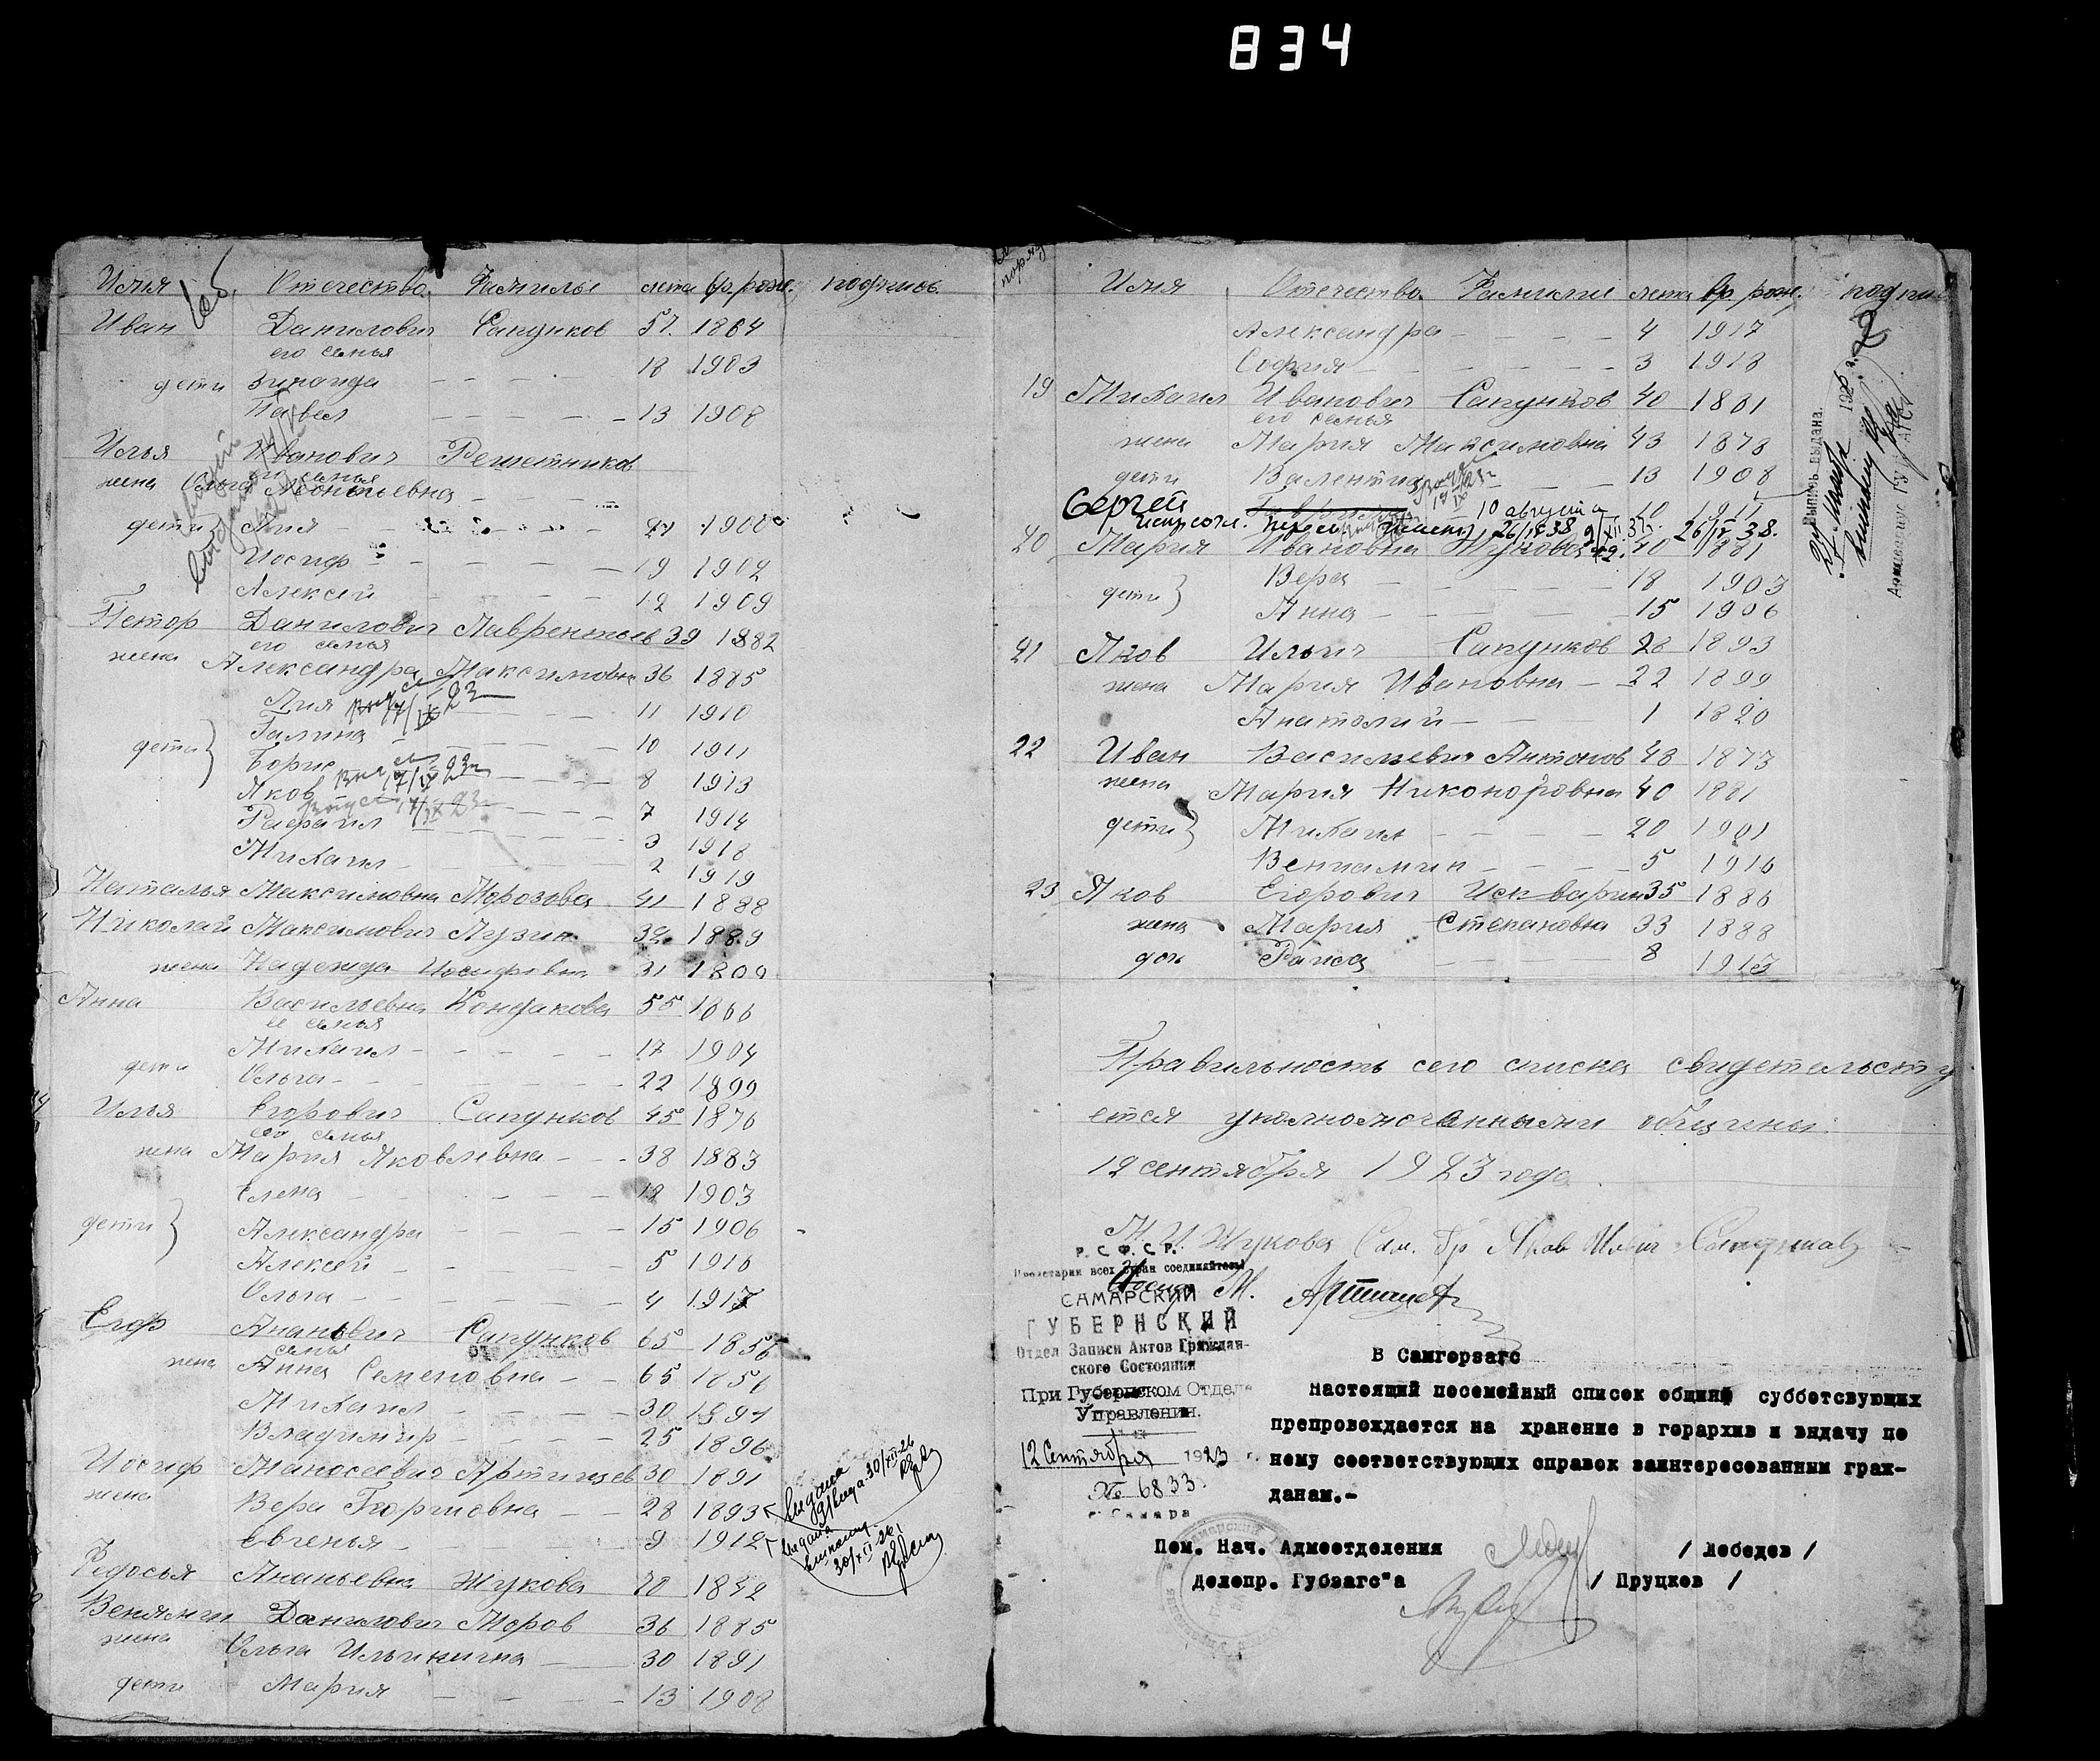 834
Имя Отчество Фамилье лета вр. рожд. подпись
Иван Данилович Сапунков 57 1864
его семья
18 1903
дети Зинаида — — — —
Павел — — — — — 13 1908
Илья Иванович Решетников
его семья
жена Ольга Леонтьевна — — —
дети Лия — 21 1900
Иосиф — — — — 19 1902
Алексей — — — 12 1909
Нестор Данилович Лаврентьев 39 1882
его семья
жена Александра Максимовна 36 1885
Лия 17/IX 23 — — — 11 1910
дети Галина — — — — 10 1911
Борис 17/IX 23 — — 8 1913
Яков — — — 7 1914
Рафаил — — — — 3 1918
Михаил — — — — 2 1919
Наталья Максимовна Морозова 1888
Николай Максимович Лузин 32 1889
жена Надежда Иосифовна 31
Анна Васильевна Кондакова 55 1866
ее семья
Михаил — — — — — 17 1904
дети Ольга — — — — — 22 1899
Илья Егорович Сапунков 45 1876
его семья
жена Мария Яковлевна — — — 38 1883
Елена — — — — — 18 1903
дети Александра — — — — 15 1906
Алексей — — — — 5 1916
Ольга — — — — — 4 1917
Егор Ананьевич Сапунков 65 1856
семья
жена Анна Семеновна — — 65 1856
Михаил — — — — 30 1891
Владимир — — — — 25 1896
Иосиф Маносеевич Артишев 30 1891
жена Вера Георгиевна — — 28 1893
Евгенья — — — — — 9 1912
выдана 30/XII-26
выдана 30/XII-26
Федосья Ананьевна Жукова 1842
Венямин Данилович Моров 36 1885
жена Ольга Ильинична — 30 1891
дети Мария — — — — 13 1908
Имя Отчество Фамилие лета вр. рожд. подпис
Александра — — — — 4 1917
София — — — — — 3 1918
19 Михаил Иванович Сапунков 40 1881
его семья
жена Мария Максимовна 43 1878
дети Валентин — — 13 1908
Сергей — 10 августа 10 1911
26/IV 38 9/XII 37 26/IV 38.
20 Мария Ивановна Жукова 40 1881
дети Вера — — — — 18 1903
Анна — — — — 15 1906
21 Яков Ильич Сапунков 28 1893
жена Мария Ивановна — — 22 1899
Анатолий — — — 1 1820
22 Иван Васильевич Антонов 48 1873
жена Мария Никоноровна 40 1881
дети Михаил — — — — 20 1901
Вениамин — — — 5 1916
23 Яков Егорович 35 1886
жена Мария Степановна 33 1888
дочь Раиса — — — — 8 1913
Выпись выдана.
Правильность сего списка свидетельству
ется уполномоченными общины.
12 сентября 1923 года
М. И. Жукова Яков Ильич Сапунков
Р. С. Ф. С. Р.
Пролетарии всех стран соединяйтесь!
САМАРСКИЙ
ГУБЕРНСКИЙ
Отдел Записи Актов Граждан-
ского Состояния
При Губернском Отделе
Управления.
12 Сентября 1923 г.
№ 6833
г. Самара
В Самгорзагс
Настоящий посемейный список общины субботсвующих
препровождается на хранение в горархив и выдачу по
нему соответствующих справок заинтересованным граж-
данам.-
Пом. Нач. Адмотделения / Лебедев /
Делопр. Губзагс"а / Пруцков /